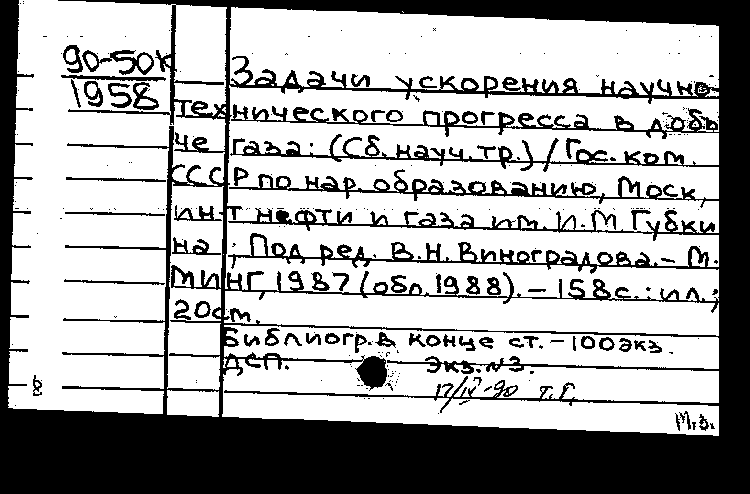 90-50к
1958
Задачи ускорения научно-
технического прогресса в добы
че газа: (Сб. науч. тр.) / Гос. ком.
СССР по нар. образованию, Моск,
ин-т нефти и газа им. И.М Губки
на ; Под ред. В.Н. Виноградова. - М.
МИНГ, 1987 (обл. 1988). - 158 с. : ил.;
20 см.
Библиогр. в конце ст. - 100 экз.
ДСП. Экз. №3.
17/IV-90 т.Г.
М.З.